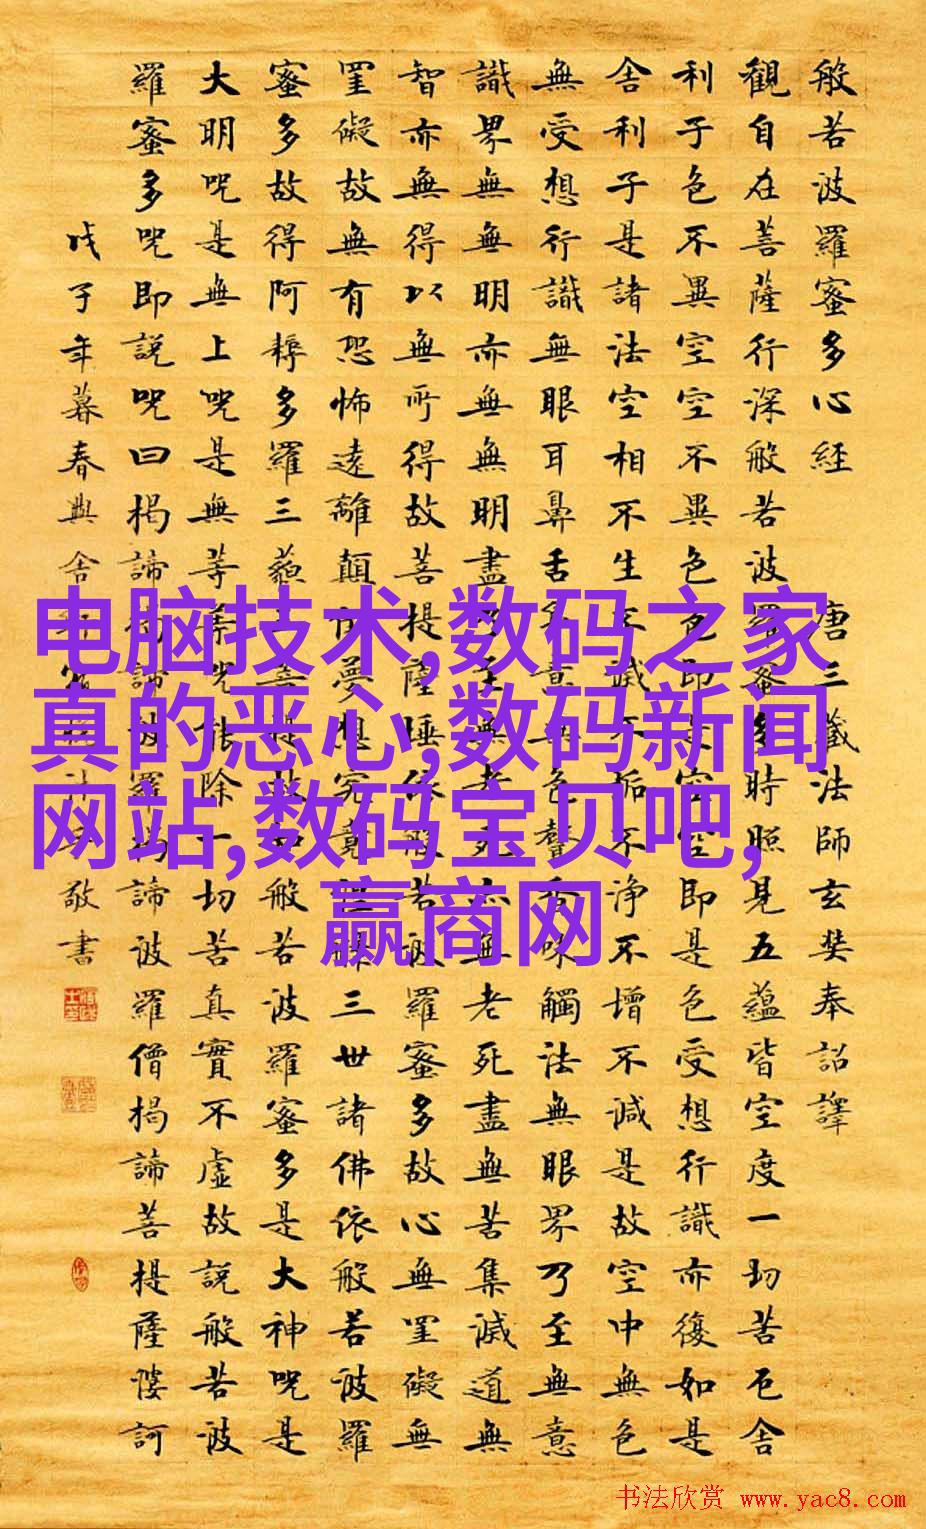 般若波羅蜜多心経 唐三藏法師玄奘奉詔譯
觀自在菩薩行深般若波羅蜜多時照見五蘊皆空度一切苦厄舍
利子色不異空空不異色色即是空空即是色受想行識亦復如是
舍利子是諸法空相不生不滅不垢不浄不增不減是故空中無色
無受想行識無眼耳鼻舌身意無色聲香味觸法無眼界乃至無意
識界無無明亦無無明盡乃至無老死亦無老死盡無苦集滅道無
智亦無得以無所得故菩提薩埵依般若波羅蜜多故心無罣礙無
罣礙故無有恐怖遠離顛倒夢想究竟涅槃三世諸佛依般若波羅
蜜多故得阿耨多羅三藐三菩提故知般若波羅蜜多是大神咒是
大明咒是無上咒是無等等咒能除一切苦真實不虛故說般若波
羅蜜多咒即說咒曰揭諦揭諦波羅揭諦波羅僧揭諦菩提薩婆訶
戊子年暮春與舍 敬書
电脑技术,数码之家
真的恶心,数码新闻
网站,数码宝贝吧,
赢商网
书法欣赏 www.yac8.com